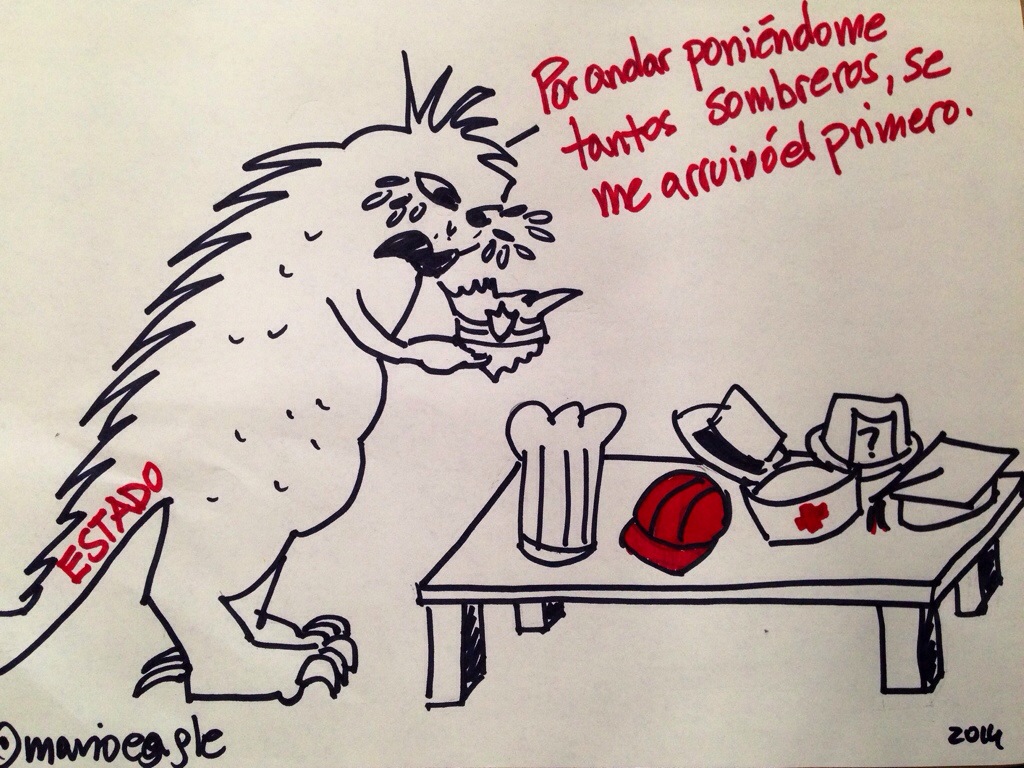 Por andar poniéndome
tantos sombreros, se
me arruinó el primero.
?
ESTADO
@marioeagle
2014